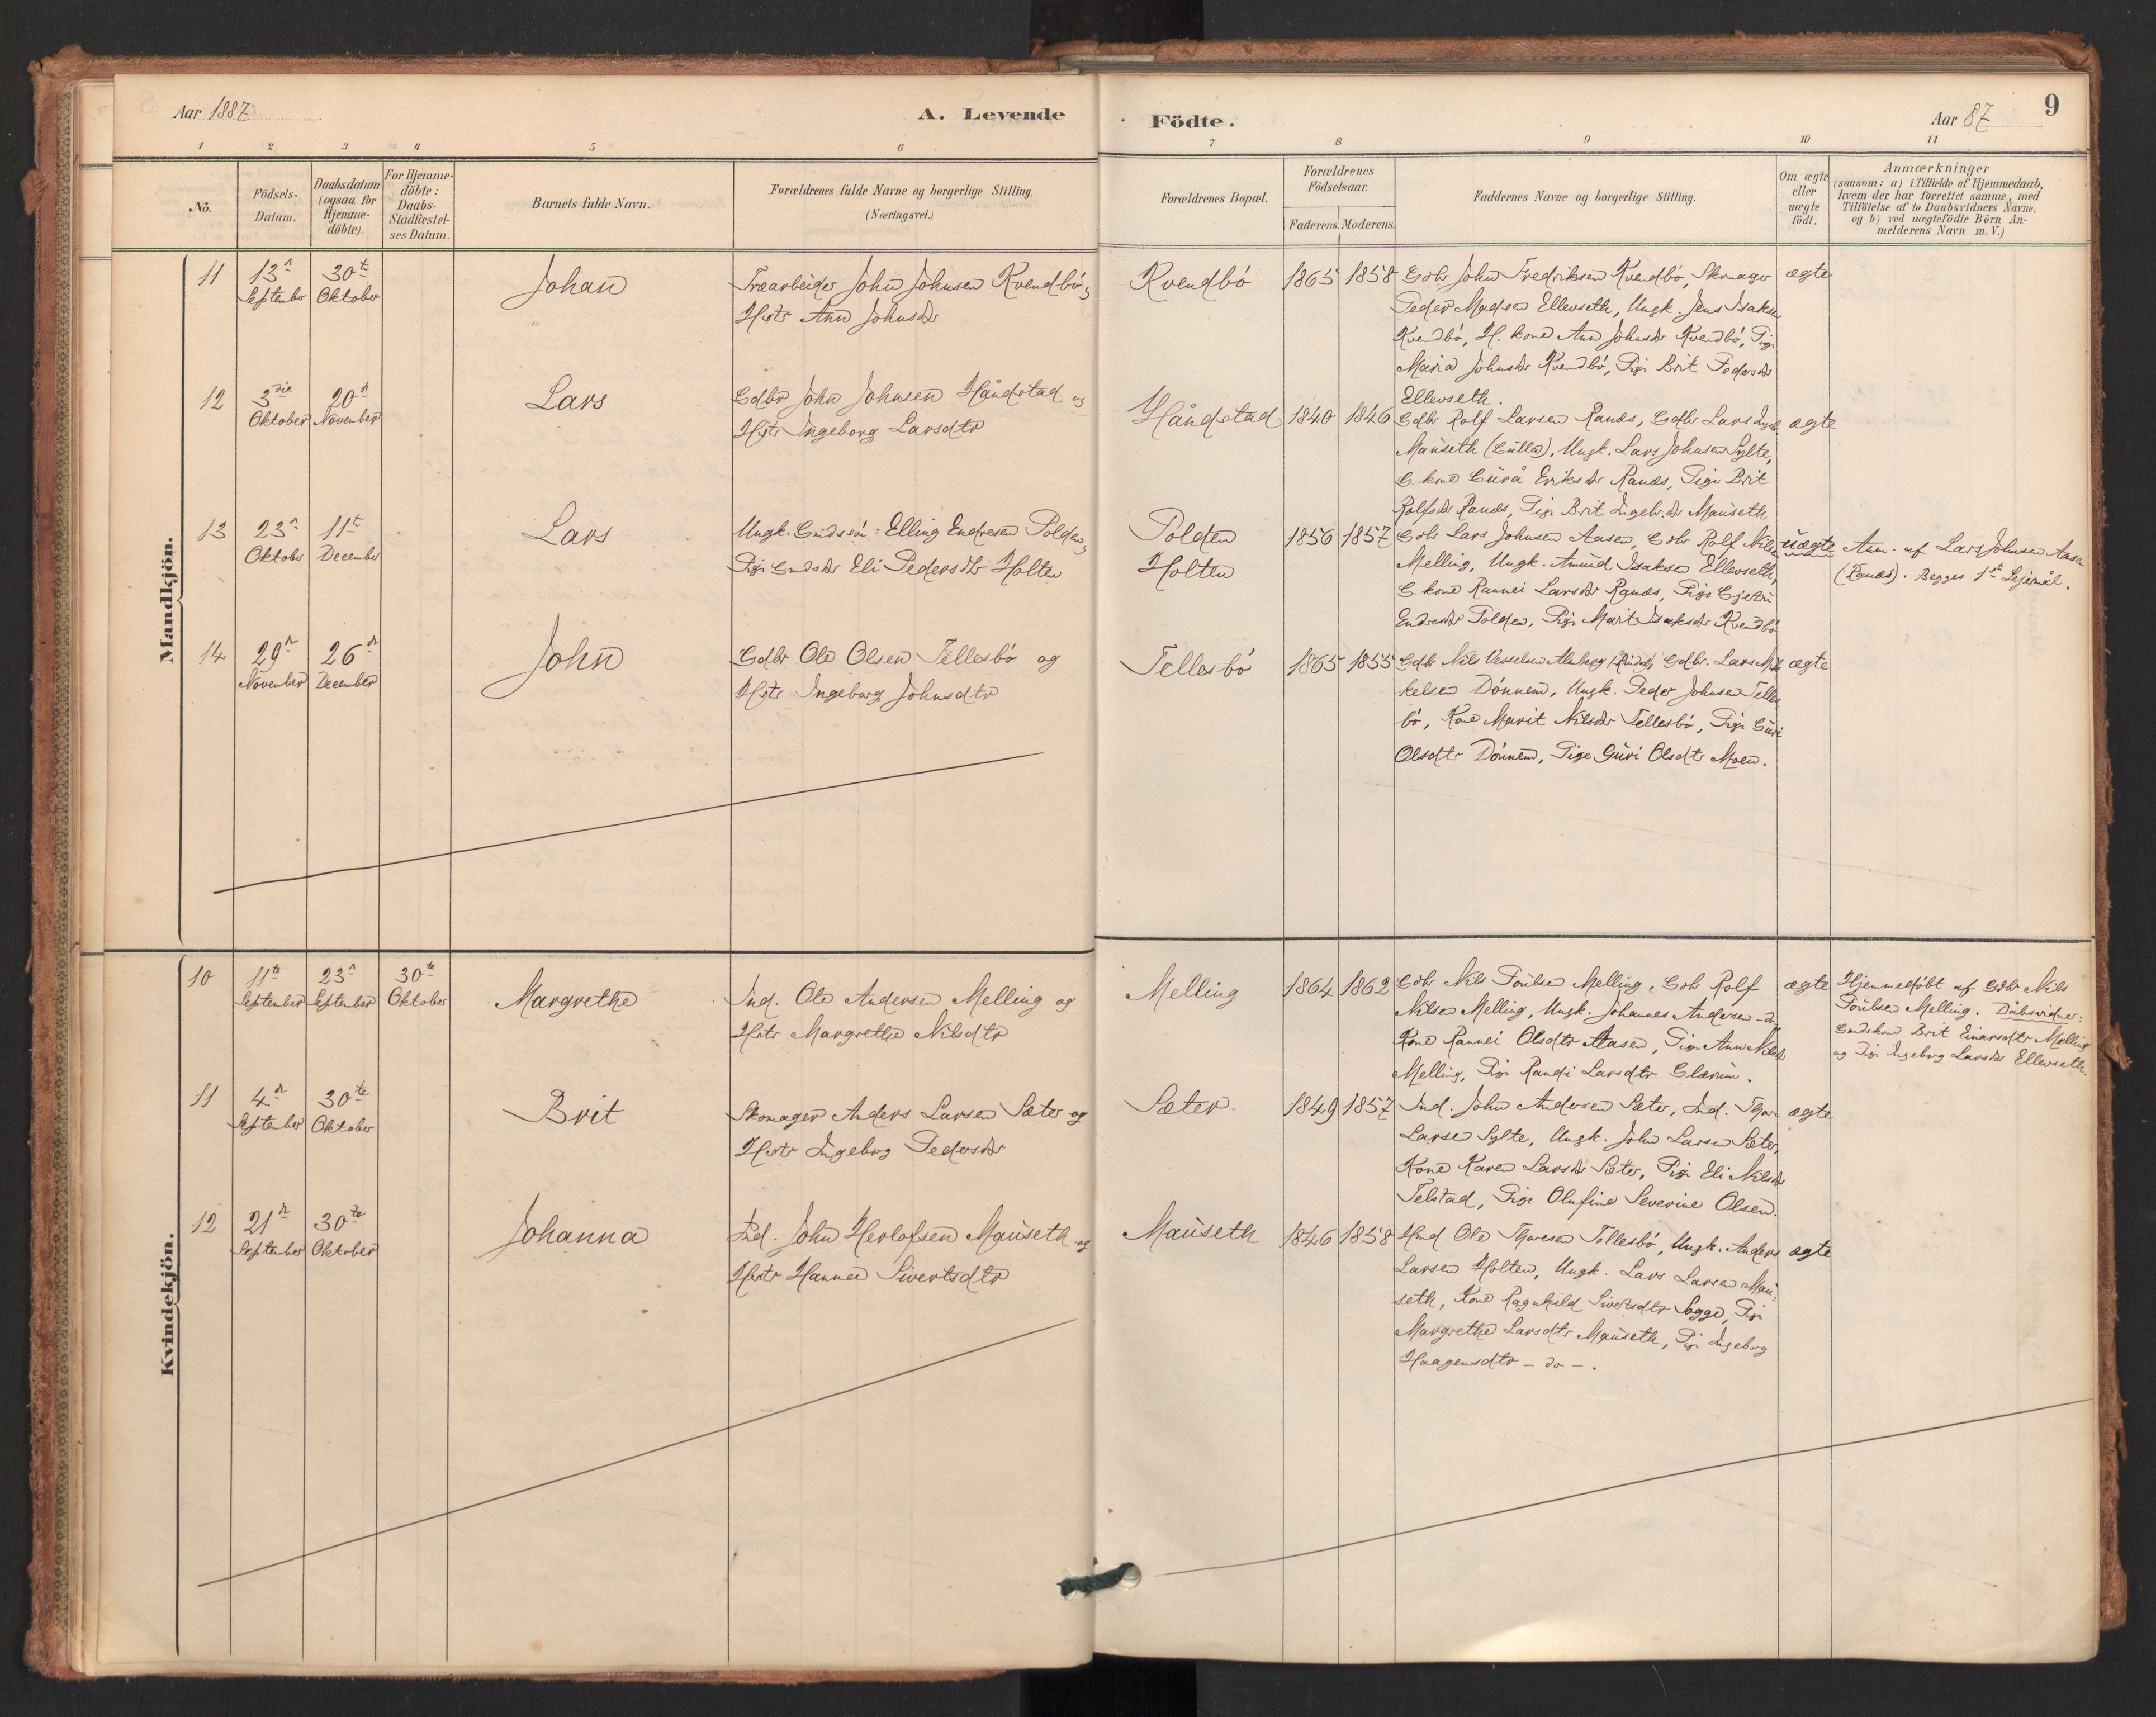 Aar 1887
A. Levende
Födte.
Aar 87
9
1 2 3 4 5 6 7 8 9 10 11
No.
Födsels-
Datum.
Daabsdatum
(ogsaa for
Hjemme-
döbte).
For Hjemme-
döbte:
Daabs-
Stadfæstel-
ses Datum.
Barnets fulde Navn.
Forældrenes fulde Navne og borgerlige Stilling.
(Næringsvei.)
Forældrenes Bopæl.
Forældrenes
Födselsaar.
Faderens. Moderens.
Faddernes Navne og borgerlige Stilling.
Om ægte
eller
uægte
födt.
Anmærkninger
(saasom: a) i Tilfælde af Hjemmedaab,
hvem der har forrettet samme, med
Tilföielse af to Daabsvidners Navne,
og b) ved uægtefödte Börn An-
melderens Navn m. V.)
Mandkjön.
11 13n September 30te Oktober Johan
Træarbeider John Johnsen Kvendbö og
Hstr Ann Johnsdr
Kvendbö 1865 1858
Gdbr John Fredriksen Kvendbö, Skomager
Peder Madsen Ellevseth, Ungk. Jens Isaksen
Kvendbö, H. kone Ann Johnsdr Kvendbö, Pige
Maria Johnsdr Kvendbö, Pige Brit Pedersdr
Ellevseth.
ægte
12 3die Oktober 20n November Lars
Gdbr John Johnsen Håndstad og
Hstr Ingeborg Larsdtr
Håndstad 1840 1846
Gdbr Rolf Larsen Ranæs, Gdbr Lars Ingebr.
Mauseth (Gulla), Ungk. Lars Johnsen Sylte,
G. kone Gurå Eriksdr Ranæs, Pige Brit
Rolfsdr Ranæs, Pige Brit Ingebr.dr Mauseth
ægte
13 23n Oktober 11te December Lars
Ungk. Gmdssön Elling Endresen Polden og
Pige Gmdsdr Eli Pedersdtr Holten
Polden
Holten
1856 1857
Gdbr Lars Johnsen Aasen, Gdbr Rolf Nilsen
Melling, Ungk. Amund Isaksen Ellevseth,
G. kone Rannei Larsdr Ranæs, Pige Gjertru
Endresdr Polden, Pige Marit Isaksdr Kvendbö
uægte
Anm. af Lars Johnsen Aasen
(Ranæs). Begges 1ste Lejemål.
14 29n November 26n December John
Gdbr Ole Olsen Tellesbö og
Hstr Ingeborg Johnsdtr
Tellesbö 1865 1855
Gdbr Nils Vesselsen Almberg (Rindal), Gdbr. Lars Mik-
kelsen Dönnem, Ungk. Peder Johnsen Telles-
bö, Kone Marit Nilsdr Tellesbö, Pige Guri
Olsdtr Dönnem, Pige Guri Olsdtr Moen.
ægte
Kvindekjön.
10 11te September 23n September 30te Oktober Margrethe
Ind. Ole Andersen Melling og
Hstr Margrethe Nilsdtr
Melling 1864 1862
Gdbr Nils Poulsen Melling, Gdbr Rolf
Nilsen Melling, Ungk. Johannes Andersen - do
Kone Rannei Olsdtr Aasen, Pige Ann Nilsdr
Melling, Pige Randi Larsdtr Glærum.
ægte
Hjemmedöbt af Gdbr Nils
Poulsen Melling. Dåbsvidner:
Gmdskone Brit Einarsdtr Melling
og Pige Ingeborg Larsdr Ellevseth.
11 4n September 30te Oktober Brit
Skomager Anders Larsen Sæter og
Hstr Ingeborg Pedersdr
Sæter 1849 1857
Ind. John Andersen Sæter, Ind. Thore
Larsen Sylte, Ungk. John Larsen Sæter,
Kone Karen Larsdr Sæter, Pige Eli Nilsdr
Telstad, Pige Olufine Severine Olsen.
ægte
12 21n September 30te Oktober Johanna
Ind. John Herlofsen Mauseth og
Hstr Hanna Sivertsdtr
Mauseth 1846 1858
Hmd Ole Thoresen Tellesbö, Ungk. Anders
Larsen Holten, Ungk. Lars Larsen Mau-
seth, Kone Ragnhild Sivertsdtr Sogge, Pige
Margrethe Larsdtr Mauseth, Pige Ingeborg
Haagensdtr - do - .
ægte